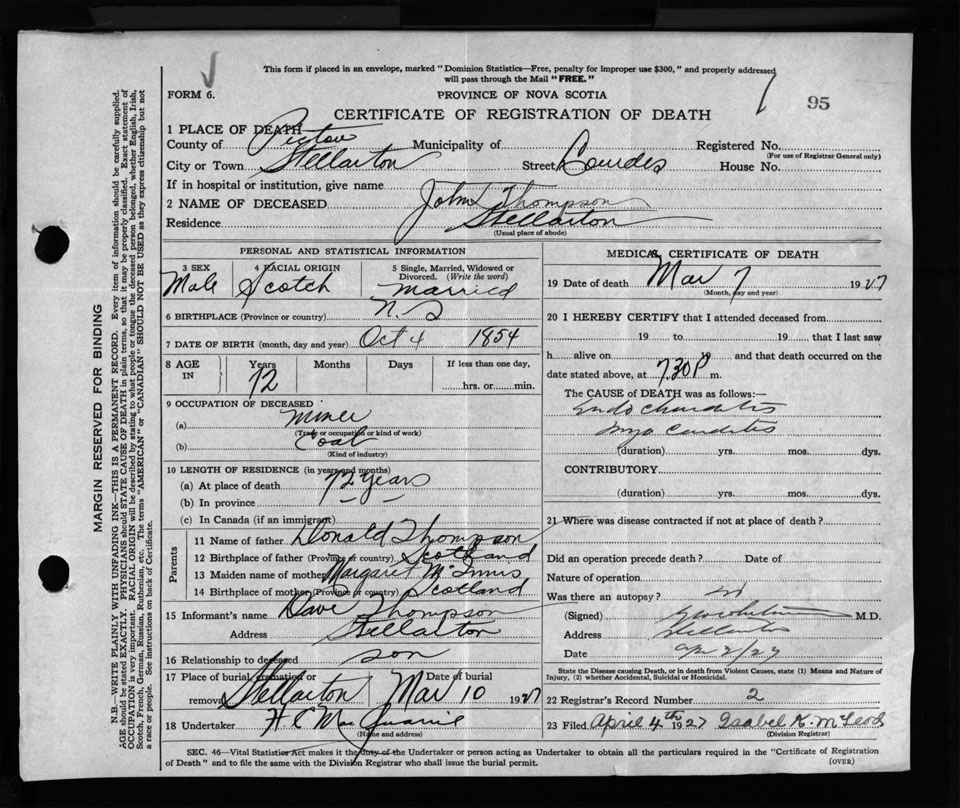 This form if placed in an envelope, marked "Dominion Statistics—Free, penalty for improper use $300," and properly addressed
will pass through the Mail "FREE."
FORM 6.
PROVINCE OF NOVA SCOTIA
95
CERTIFICATE OF REGISTRATION OF DEATH
1 PLACE OF DEATH
County of Pictou Municipality of Registered No.
(For use of Registrar General only)
City or Town Stellarton Street Lourdes House No.
If in hospital or institution, give name
2 NAME OF DECEASED John Thompson
Residence Stellarton
(Usual place of abode)
PERSONAL AND STATISTICAL INFORMATION
3 SEX 4 RACIAL ORIGIN 5 Single, Married, Widowed or Divorced. (Write the word)
Male Scotch Married
6 BIRTHPLACE (Province or country) N.S
7 DATE OF BIRTH (month, day and year) Oct 4 1854
8 AGE IN Years Months Days If less than one day,
72 hrs. or min.
9 OCCUPATION OF DECEASED
(a) Miner
(Trade or occupation or kind of work)
(b) Coal
(Kind of industry)
10 LENGTH OF RESIDENCE (in years and months)
(a) At place of death 72 years
(b) In province
(c) In Canada (if an immigrant)
Parents
11 Name of father Donald Thompson
12 Birthplace of father (Province or country) Scotland
13 Maiden name of mother Margaret McInnis
14 Birthplace of mother (Province or country) Scotland
15 Informant's name Dave Thompson
Address Stellarton
16 Relationship to deceased son
17 Place of burial, cremation or removal Date of burial
Stellarton Mar 10 1927
18 Undertaker H. MacQuarrie
(Name and address)
MEDICAL CERTIFICATE OF DEATH
19 Date of death Mar 7 1927
(Month, day and year)
20 I HEREBY CERTIFY that I attended deceased from
19 to 19 that I last saw
h alive on and that death occurred on the
date stated above, at 7.30 P m.
The CAUSE of DEATH was as follows:—
Endocarditis
Myo Carditis
(duration) yrs. mos. dys.
CONTRIBUTORY
(duration) yrs. mos. dys.
21 Where was disease contracted if not at place of death?
Did an operation precede death? Date of
Nature of operation
Was there an autopsy? no
(Signed) M.D.
Address Stellarton
Date Apr 2/27
State the Disease causing Death, or in death from Violent Causes, state (1) Means and Nature of
Injury, (2) whether Accidental, Suicidal or Homicidal.
22 Registrar's Record Number 2
23 Filed April 4th 1927 Isabel K. McLeod
(Division Registrar)
SEC. 46—Vital Statistics Act makes it the duty of the Undertaker or person acting as Undertaker to obtain all the particulars required in the "Certificate of Registration
of Death" and to file the same with the Division Registrar who shall issue the burial permit.
(OVER)
MARGIN RESERVED FOR BINDING
N.B.—WRITE PLAINLY WITH UNFADING INK—THIS IS A PERMANENT RECORD. Every item of information should be carefully supplied.
AGE should be stated EXACTLY. PHYSICIANS should STATE CAUSE OF DEATH in plain terms, so that it may be properly classified. Exact statement of
OCCUPATION is very important. RACIAL ORIGIN will be described by stating to what people or tongue the deceased person belonged, whether English, Irish,
Scotch, French, German, Russian, Ruthenian, etc. The terms "AMERICAN" or "CANADIAN" SHOULD NOT BE USED as they express citizenship but not
a race or people. See instructions on back of Certificate.